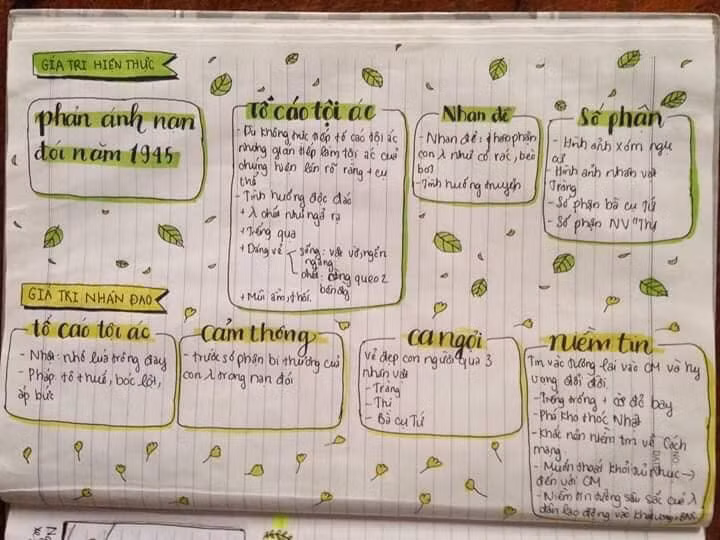 GIÁ TRỊ HIỆN THỰC
phản ánh nạn
đói năm 1945
Tố cáo tội ác
- Dù không trực tiếp tố cáo tội ác
nhưng gián tiếp làm tội ác của
chúng hiện lên rõ ràng + cụ
thể
- Tình huống độc đáo
+ λ chết như ngả rạ
+ Tiếng quạ
+ Dáng vẻ
sống: vật vờ, ngổn
ngang
chết: còng queo 2
bên đg
+ Mùi ẩm, thối.
Nhan đề
- Nhan đề: thân phận
con λ như cỏ rác, bèo
bọt
- Tình huống truyện
Số phận
- Hình ảnh xóm ngụ
cư
- Hình ảnh nhân vật
Tràng
- Số phận bà cụ Tứ
- Số phận NV "Thị
GIÁ TRỊ NHÂN ĐẠO
tố cáo tội ác
- Nhật: nhổ lúa trồng đay
- Pháp: tô thuế, bóc lột,
áp bức
cảm thông
- trước số phận bi thương của
con λ trong nạn đói
ca ngợi
vẻ đẹp con người qua 3
nhân vật
- Tràng
- Thị
- Bà cụ Tứ
niềm tin
Tin vào tương lai vào CM và hy
vọng đổi đời
- Tiếng trống + cờ đỏ bay
- Phá kho thóc Nhật
- Khắc hoạ niềm tin về Cách
mạng
- Muốn thoát khỏi tủi nhục →
đến với CM
- Niềm tin tưởng sâu sắc của λ
dân lao động vào